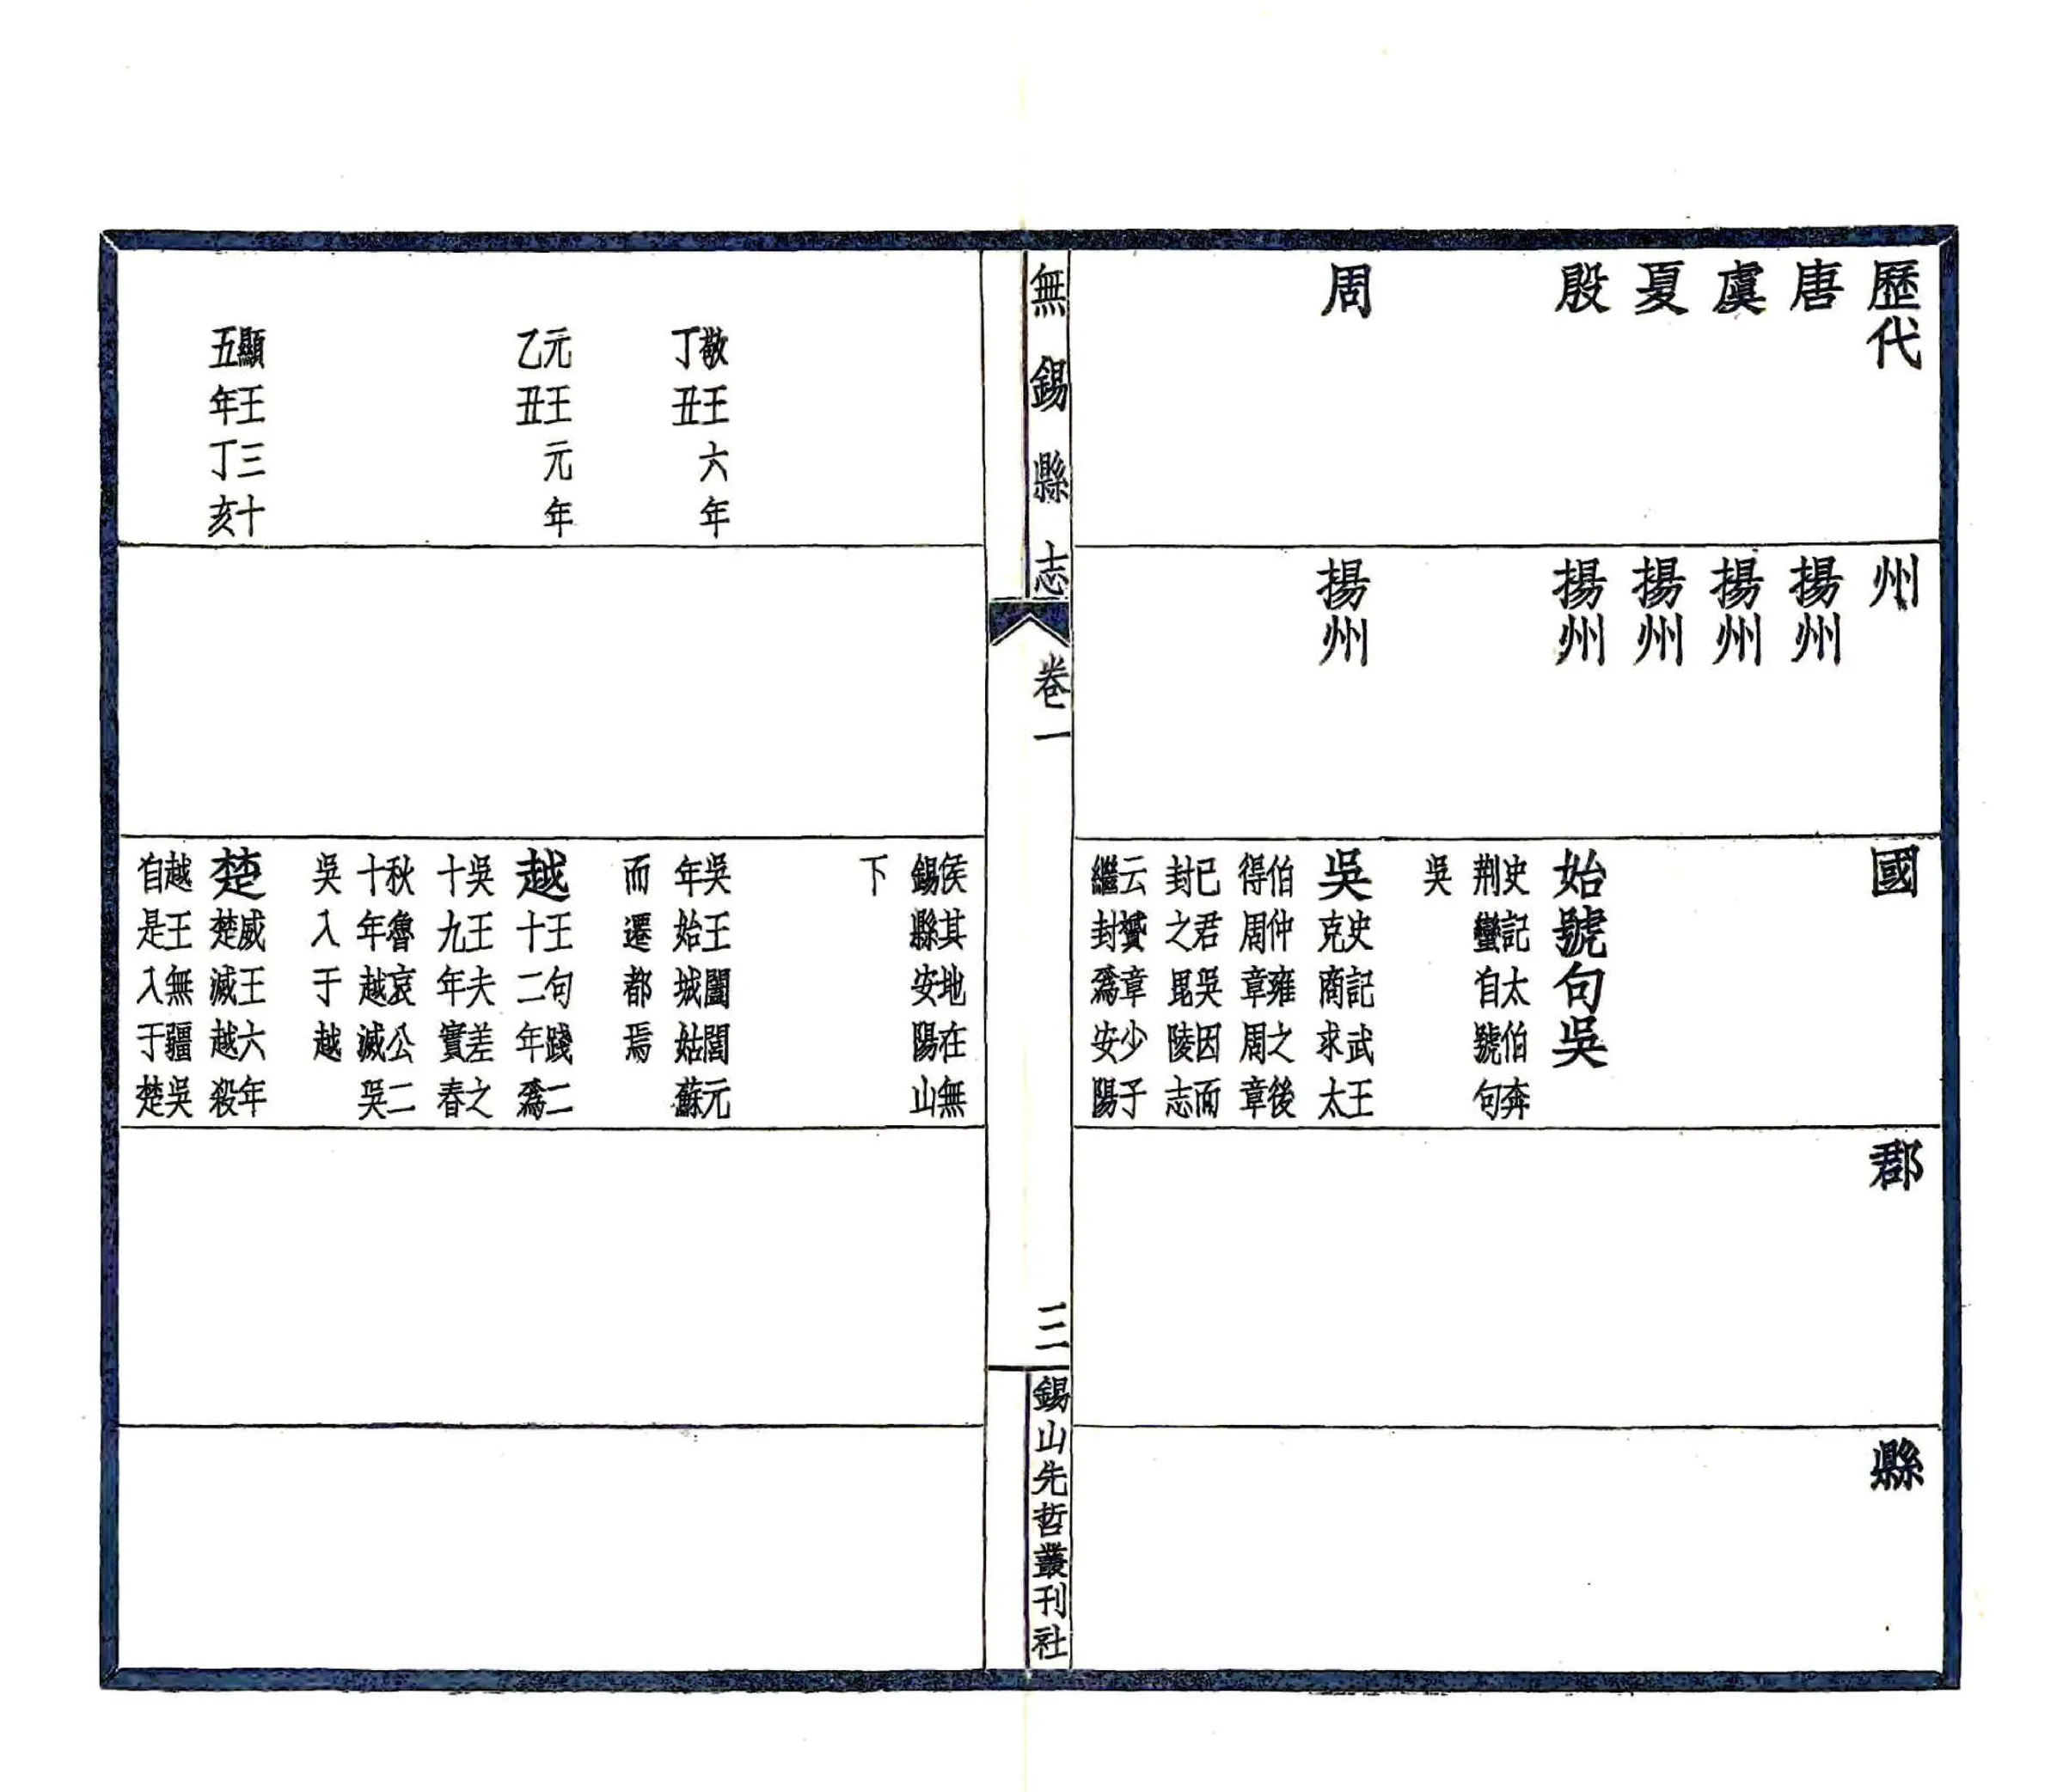 歷代
州
國
郡
縣
唐
揚州
虞
揚州
夏
揚州
殷
揚州
始號句吳
史記太伯奔
荆蠻自號句
吳
周
揚州
吳
史記武王
克商求太
伯仲雍之後
得周章周章
已君吳因而
封之毘陵志
云贇章少子
繼封爲安陽
無錫縣志
卷一
三
錫山先哲叢刊社
侯其地在無
錫縣安陽山
下
敬王六年
丁丑
吳王闔閭元
年始城姑蘇
而遷都焉
元王元年
乙丑
越
王句踐二
十二年爲
吳王夫差之
十九年實春
秋魯哀公二
十年越滅吳
吳入于越
顯王三十
五年丁亥
楚
威王六年
楚滅越殺
越王無疆吳
自是入于楚